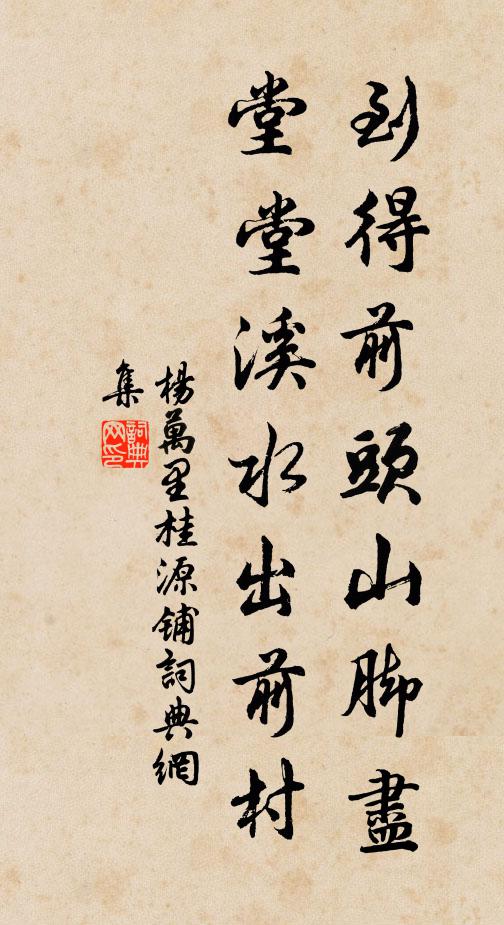 到得前頭山脚盡
堂堂溪水出前村
楊萬里桂源鋪詞典網
集
詞典
网印